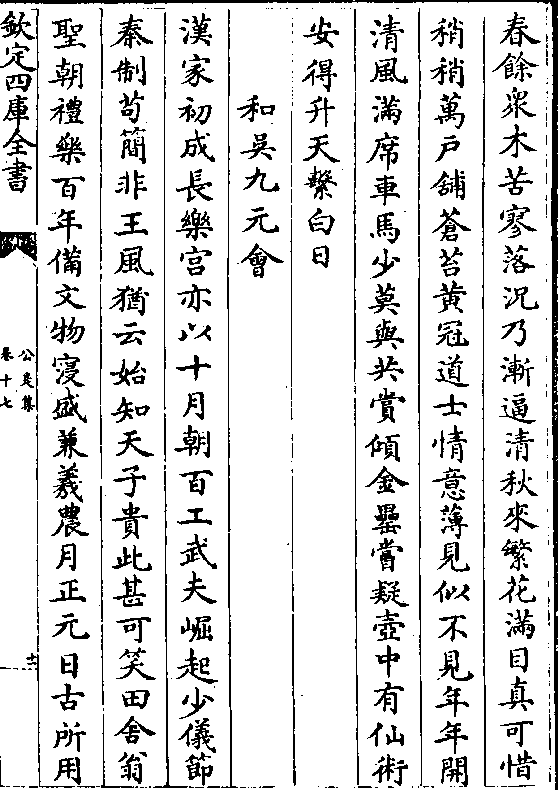 春餘衆木苦寥落況乃漸逼清秋來繁花滿目真可惜
稍稍萬户舖蒼苔黄冠道士情意薄見似不見年年開
清風滿席車馬少莫與共賞傾金罍嘗疑壺中有仙術
安得升天繫白日
和吳九元會
漢家初成長樂宫亦以十月朝百工武夫崛起少儀節
秦制苟簡非王風猶云始知天子貴此甚可笑田舍翁
聖朝禮樂百年備文物寖盛兼羲農月正元日古所用
欽定四庫全書
公是集
卷十七
十二